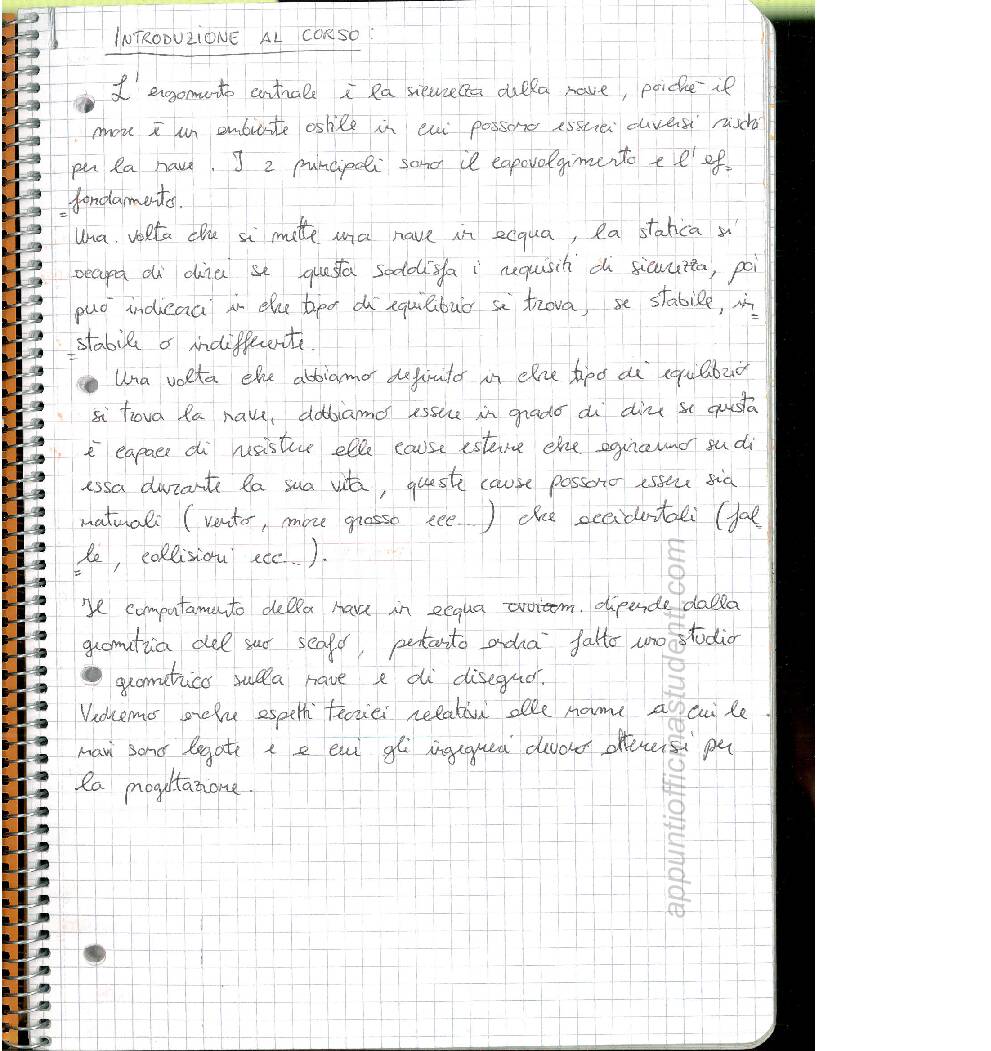 INTRODUZIONE AL CORSO:
L'argomento centrale è la sicurezza della nave, poiché il
mare è un ambiente ostile in cui possono esserci diversi rischi
per la nave. I 2 principali sono il capovolgimento e l'af-
fondamento.
Una volta che si mette una nave in acqua, la statica si
occupa di dirci se questa soddisfa i requisiti di sicurezza, poi
può indicarci in che tipo di equilibrio si trova, se stabile, in=
=stabile o indifferente.
Una volta che abbiamo definito in che tipo di equilibrio
si trova la nave, dobbiamo essere in grado di dire se questa
è capace di resistere alle cause esterne che agiranno su di
essa durante la sua vita, queste cause possono essere sia
naturali (vento, mare grosso ecc...) che accidentali (fal
le, collisioni ecc...).
Il comportamento della nave in acqua dipende dalla
geometria del suo scafo, pertanto andrà fatto uno studio
geometrico sulla nave e di disegno.
Vedremo anche aspetti teorici relativi alle norme a cui le
navi sono legate e a cui gli ingegneri devono attenersi per
la progettazione.
appuntiofficinastudenti.com